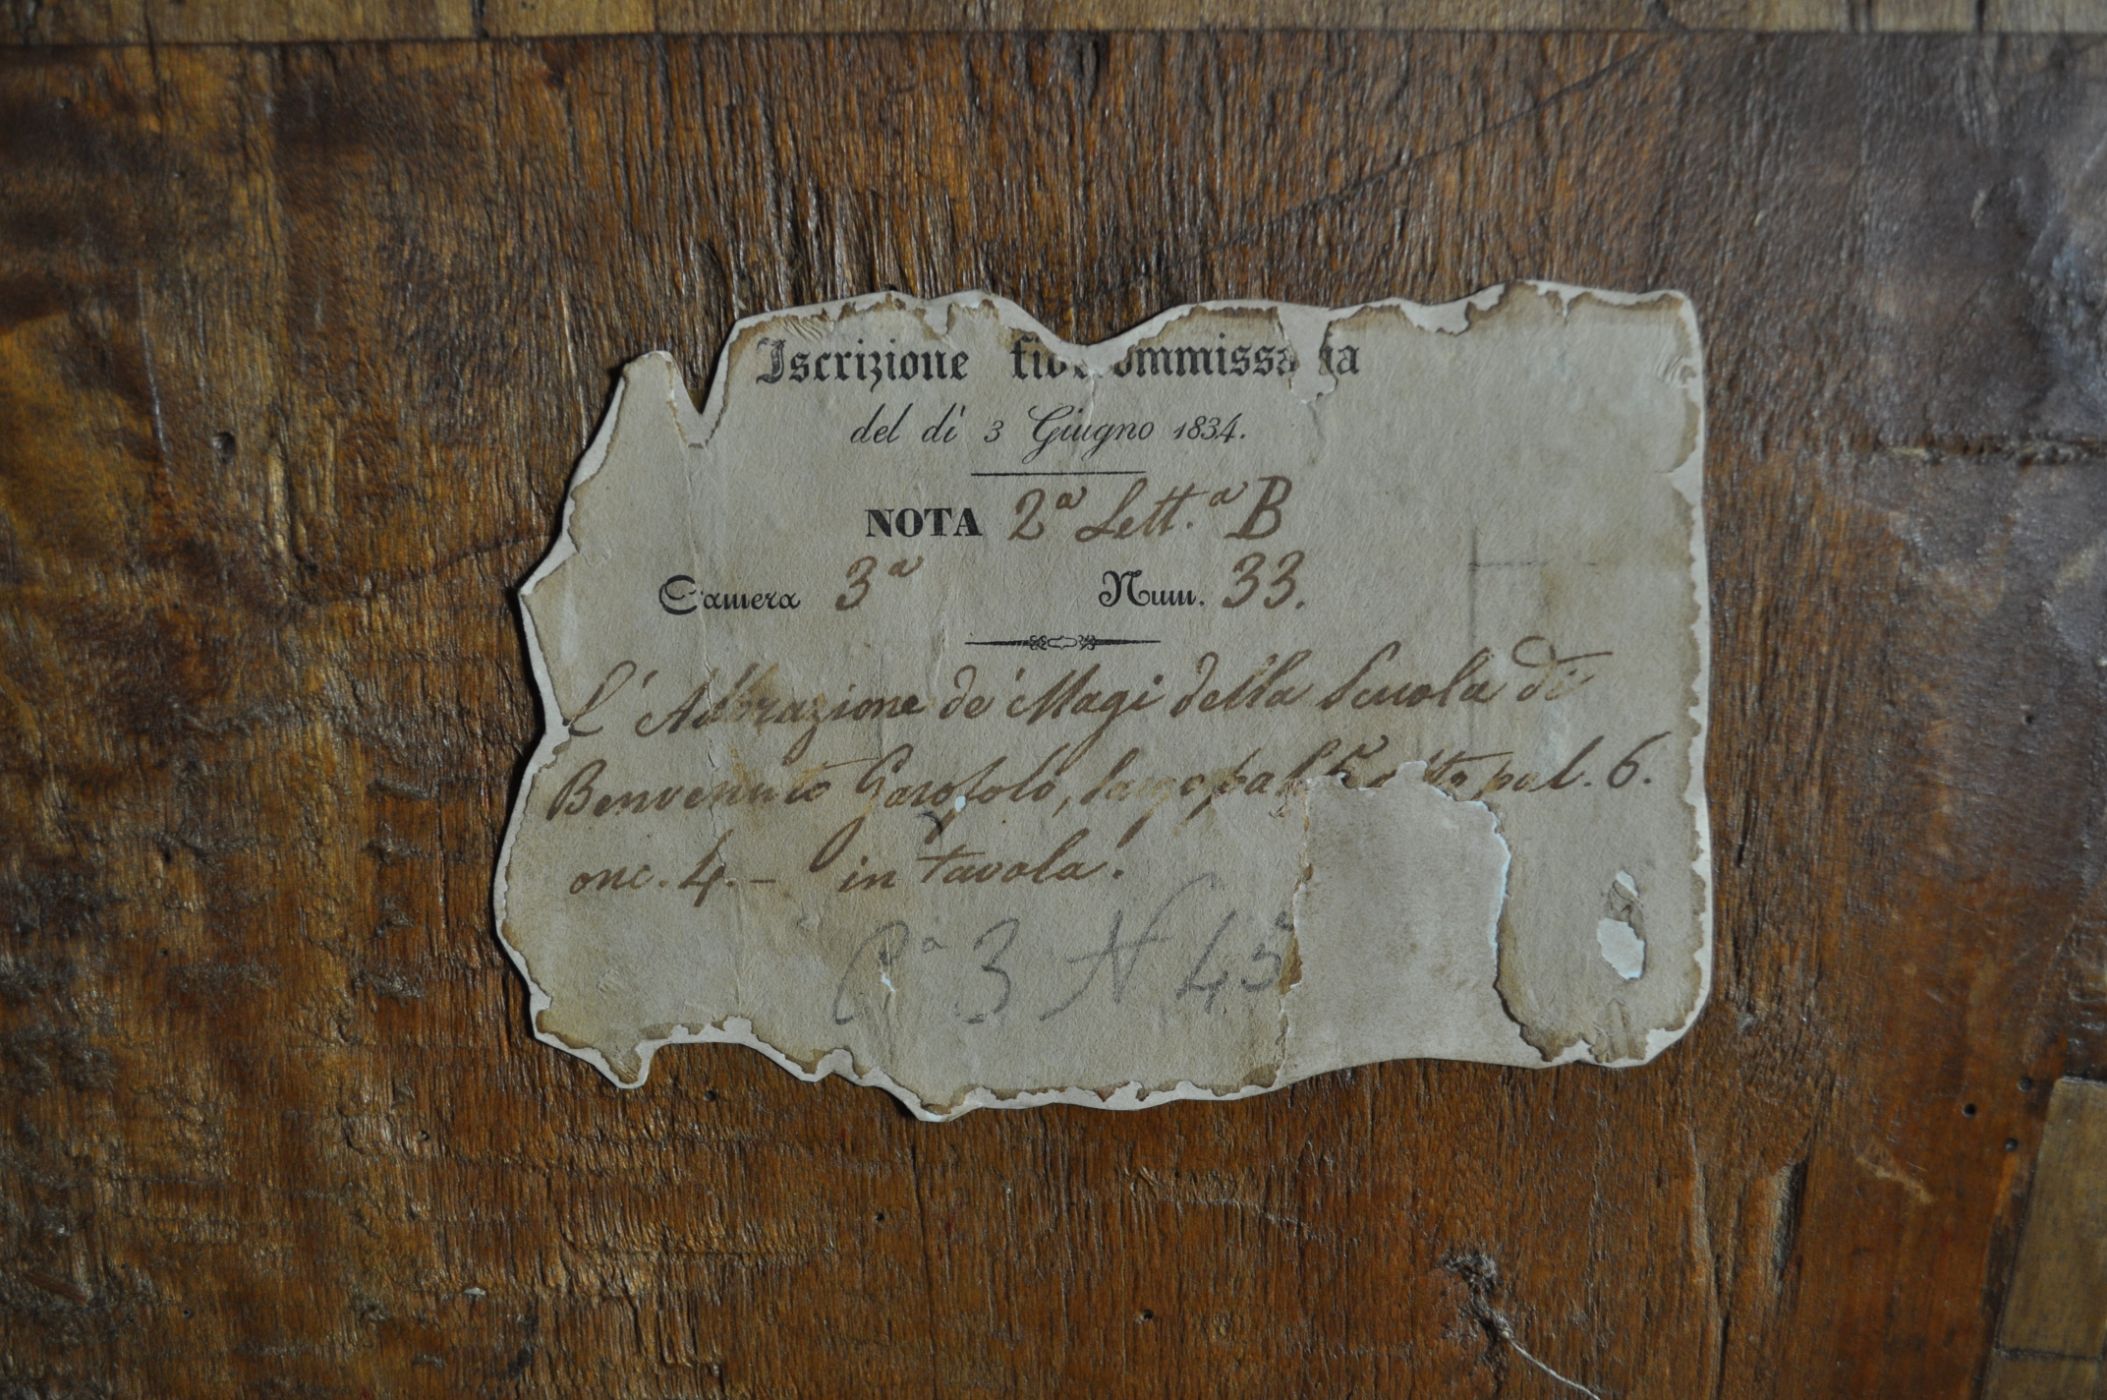 Iscrizione fidecommissaria
del dì 3 Giugno 1834.
NOTA 2ª Lett.ª B
Camera 3ª Num. 33.
L'Adorazione de' Magi della Scuola di
Benvenuto Garofolo, largo pal. alto pal. 6.
onc. 4. - in tavola.
Cª 3 N 45